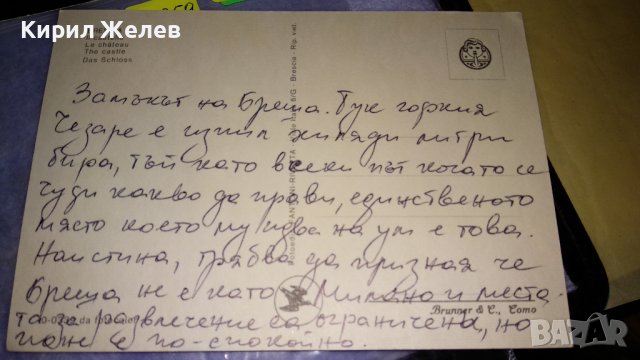 Кирил Желев
Le château
The castle
Das Schloss
Brescia - Rip. viet.
Замъкът на Бреша. Тук горкия
Чезаре е изпил хиляди литри
бира, тъй като всеки път когато се
чуди какво да прави, единственото
място което му идва на ум е това.
Наистина, трябва да призная че
Бреша не е като Милано и места-
та за развлечение са ограничени, но
пък е по-спокойно.
Brunner & C., Como
BAZAR